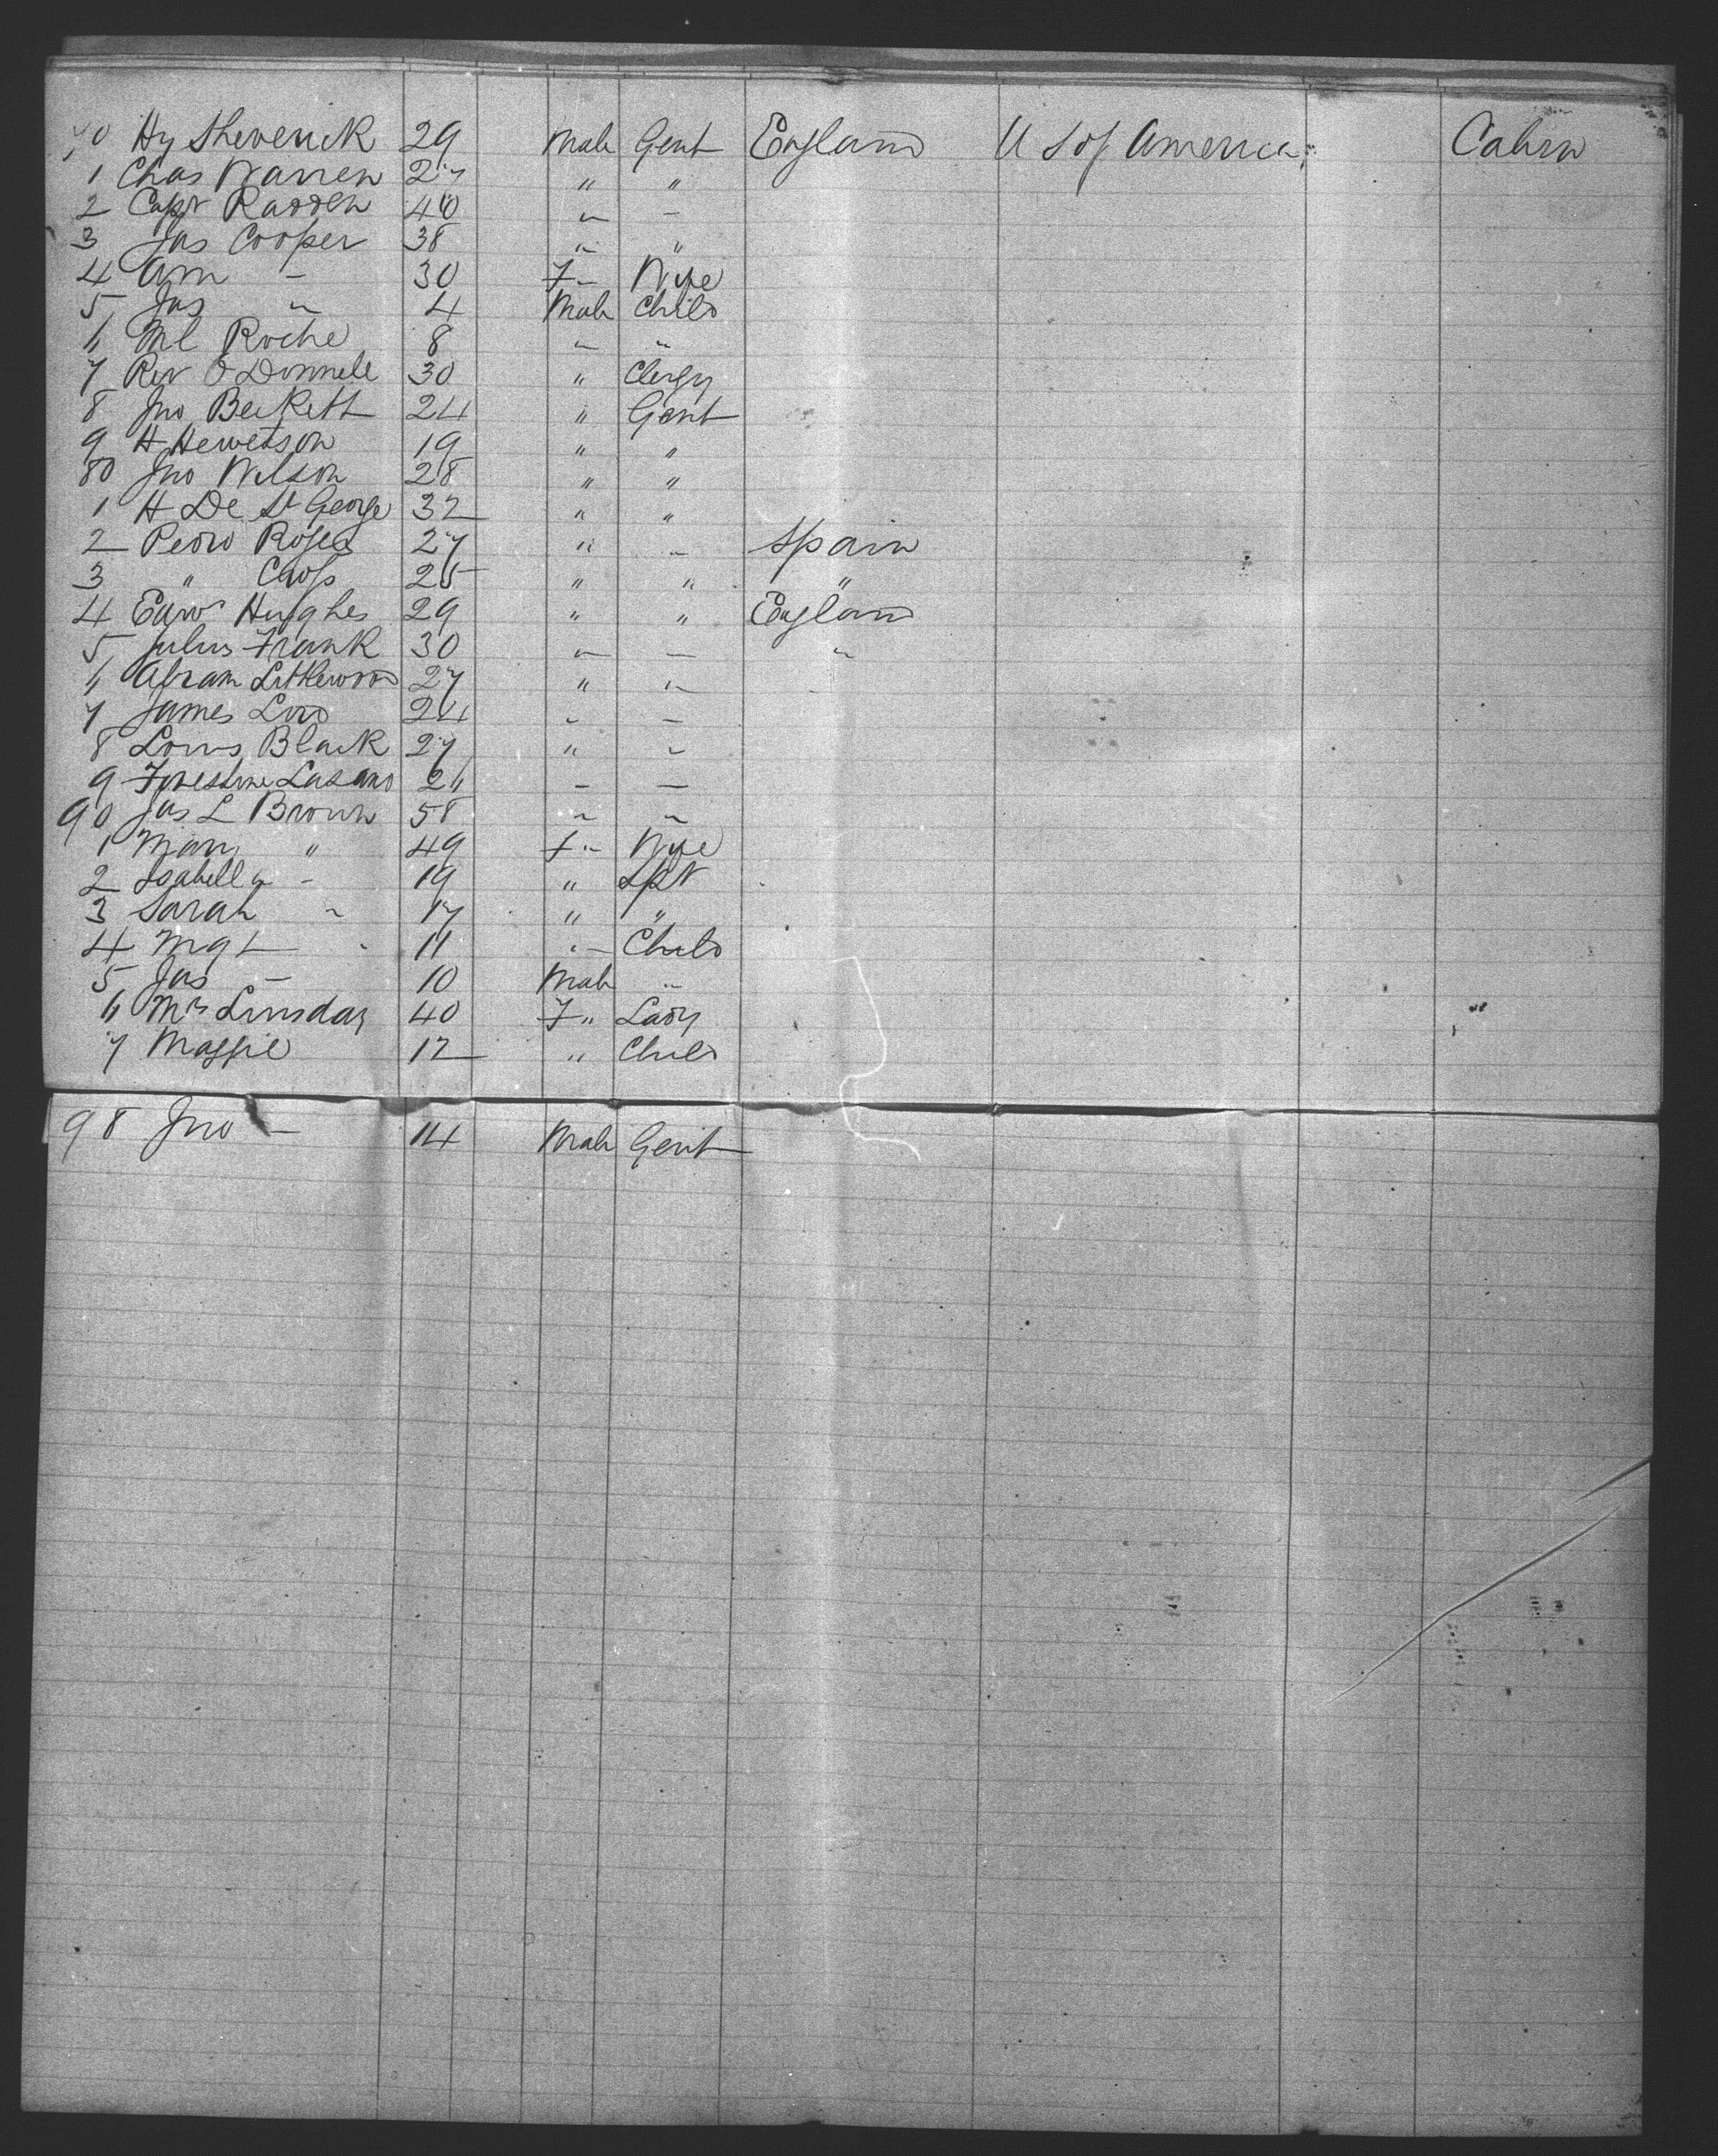 70 Hy Sheverick 29 Male Gent England U S of America Cabin
1 Chas Warren 27 " "
2 Capt Radden 40 " "
3 Jas Cooper 38 " "
4 Ann " 30 F " Wife
5 Jas " 4 Male Child
6 Ml Roche 8 " "
7 Rev O'Donnell 30 " Clergy
8 Jno Beckett 24 " Gent
9 H Hewetson 19 " "
80 Jno Wilson 28 " "
1 H De St George 32 " "
2 Pedro 27 " " Spain
3 " 25 " " "
4 Edwd Hughes 29 " " England
5 Julius Frank 30 " " "
6 Abram Littlewood 27 " "
7 James Lord 24 " "
8 Louis Black 27 " "
9 26 " "
90 Jas L Brown 58 " "
1 Mary " 49 F " Wife
2 Isabella " 19 " Spr
3 Sarah " 17 " "
4 Mgt " 11 " Child
5 Jas " 10 Male "
6 Mrs Linsday 40 F " Lady
7 Maggie 12 " Child
98 Jno " 14 Male Gent